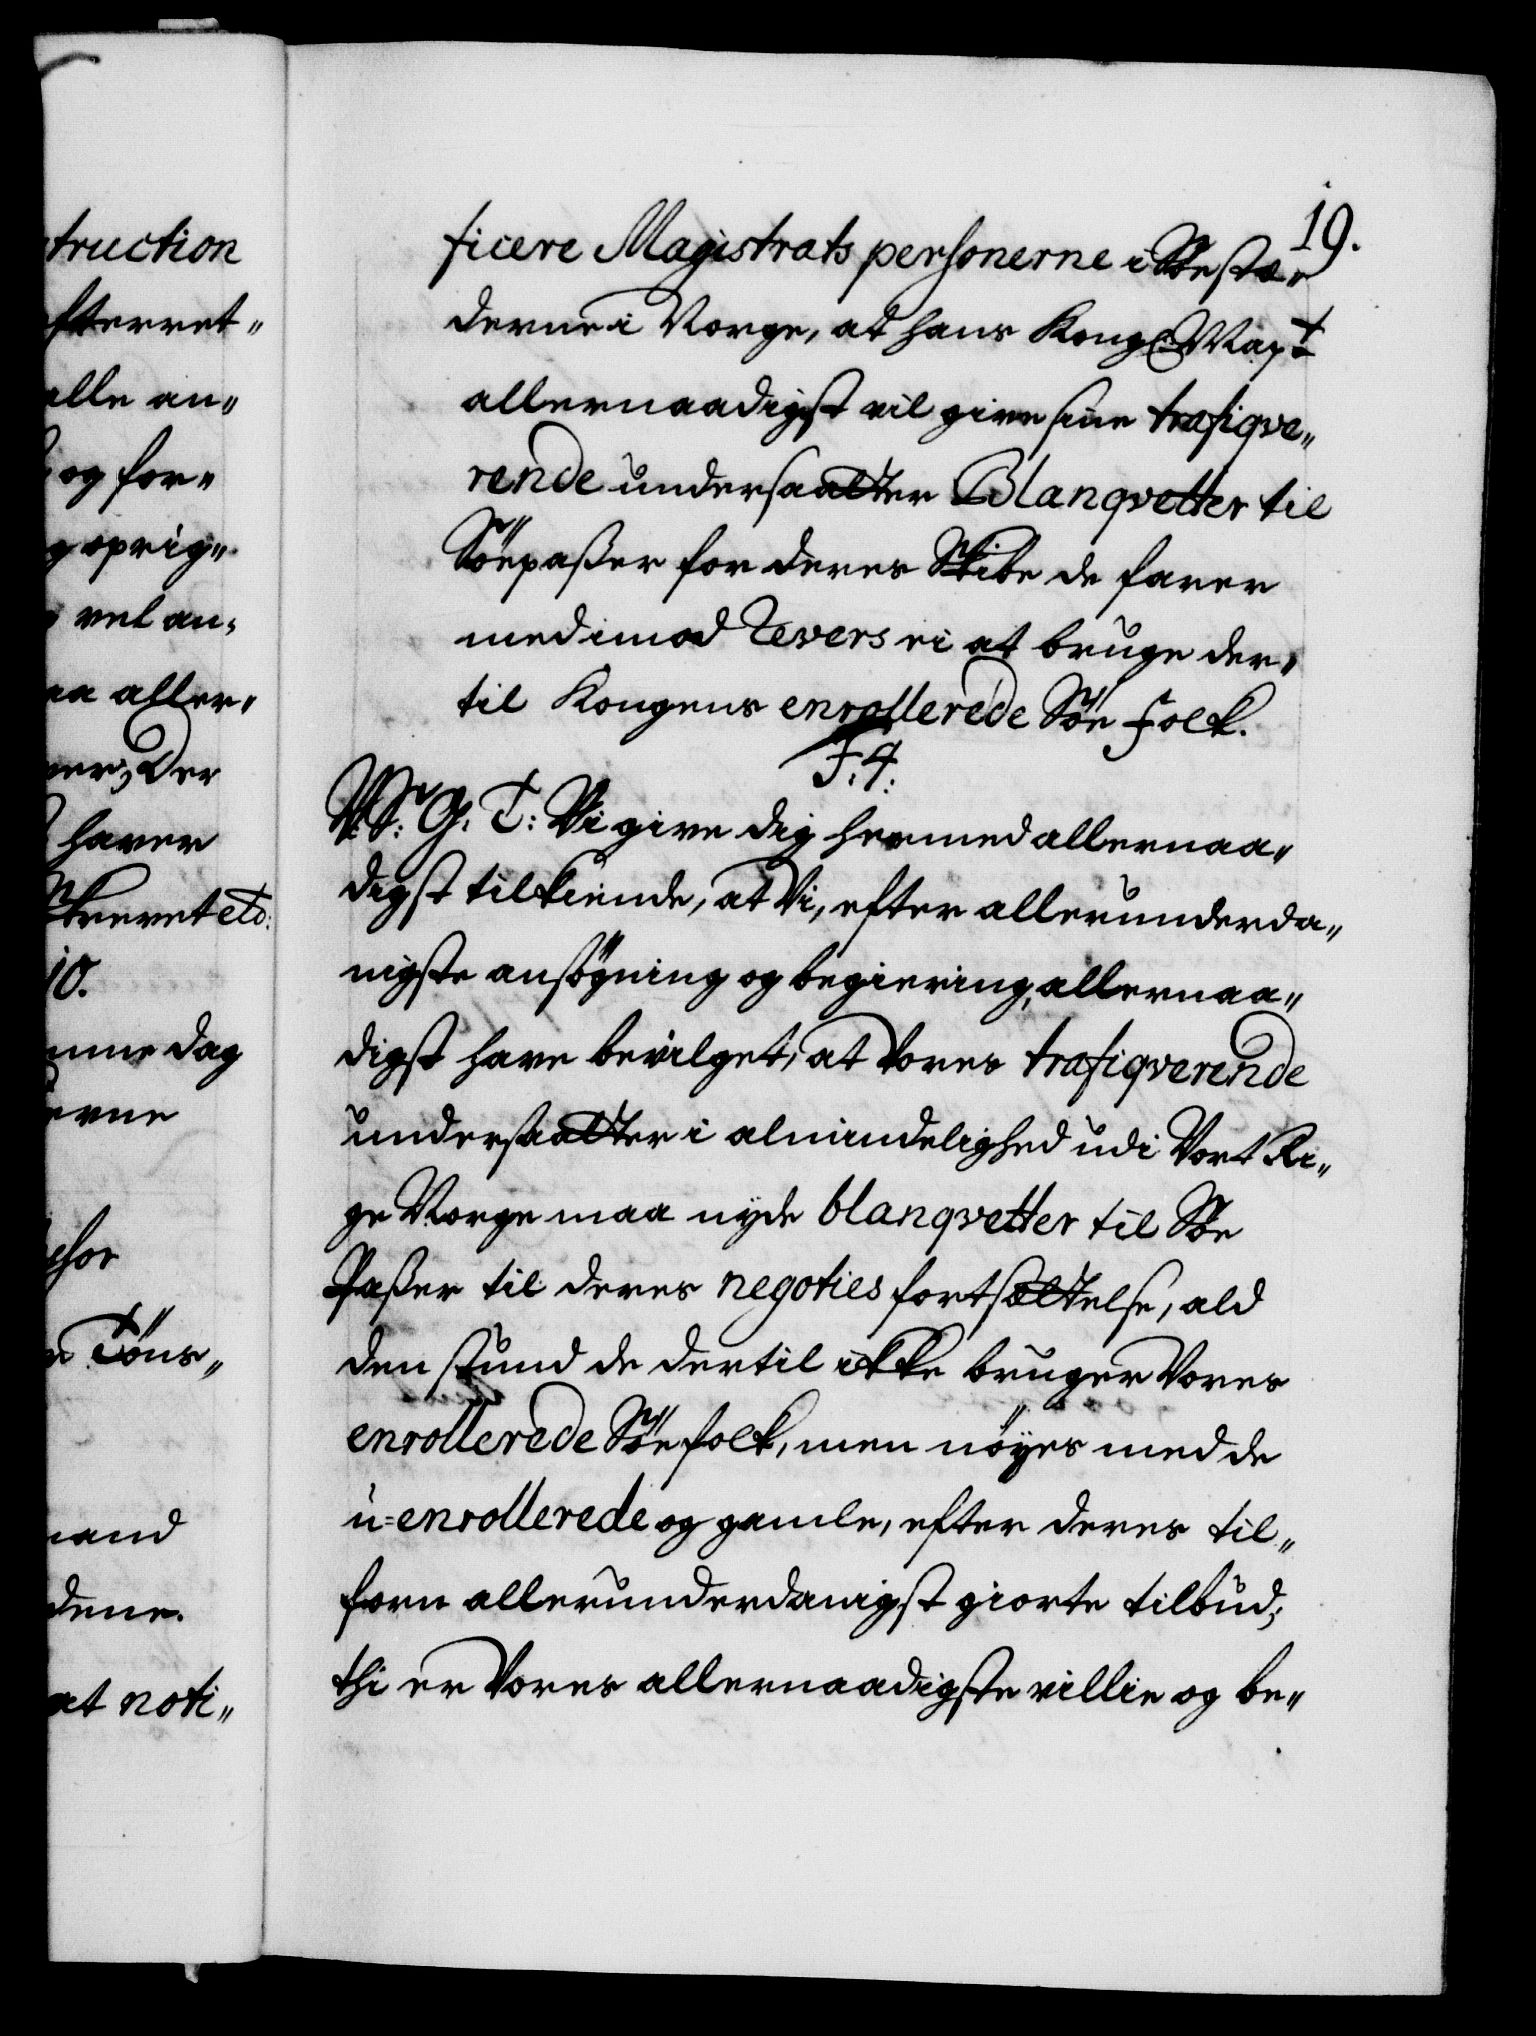 truction
efterret„
alle an„
og for„
g oprig„
vel an„
aa aller„
ver, Der
haver
Skrevet etc:
10.
mme dag
erne
Töns„
mand
dene.
at noti„
19.
ficere Magistrats personerne i Söestæ„
derne i Norge, at hans Kongl Mayt
allernaadigst vil give sine trafiqve„
rende undersaatter Blanqvetter til
Söepasser for deres Skibe de farer
med imod Revers ei at bruge der„
til Kongens enrollerede Söe Folk.
F. 4.
V. S: G. T: Vi give dig hermed allernaa„
digst tilkiende, at Vi, efter allerunderda„
nigste ansögning og begiering, allernaa„
digst have bevilget, at Vores trafiqverende
undersaatter i almindelighed udi Vort Ri„
ge Norge maa nyde blanqvetter til Söe
Passer til deres negoties fortsættelse, ald
den stund de dertil ikke bruger Vores
enrollerede Söefolk, men nöyes med de
u=enrollerede og gamle, efter deres til„
forn allerunderdanigst giorte tilbud;
thi er Vores allernaadigste villie og be„